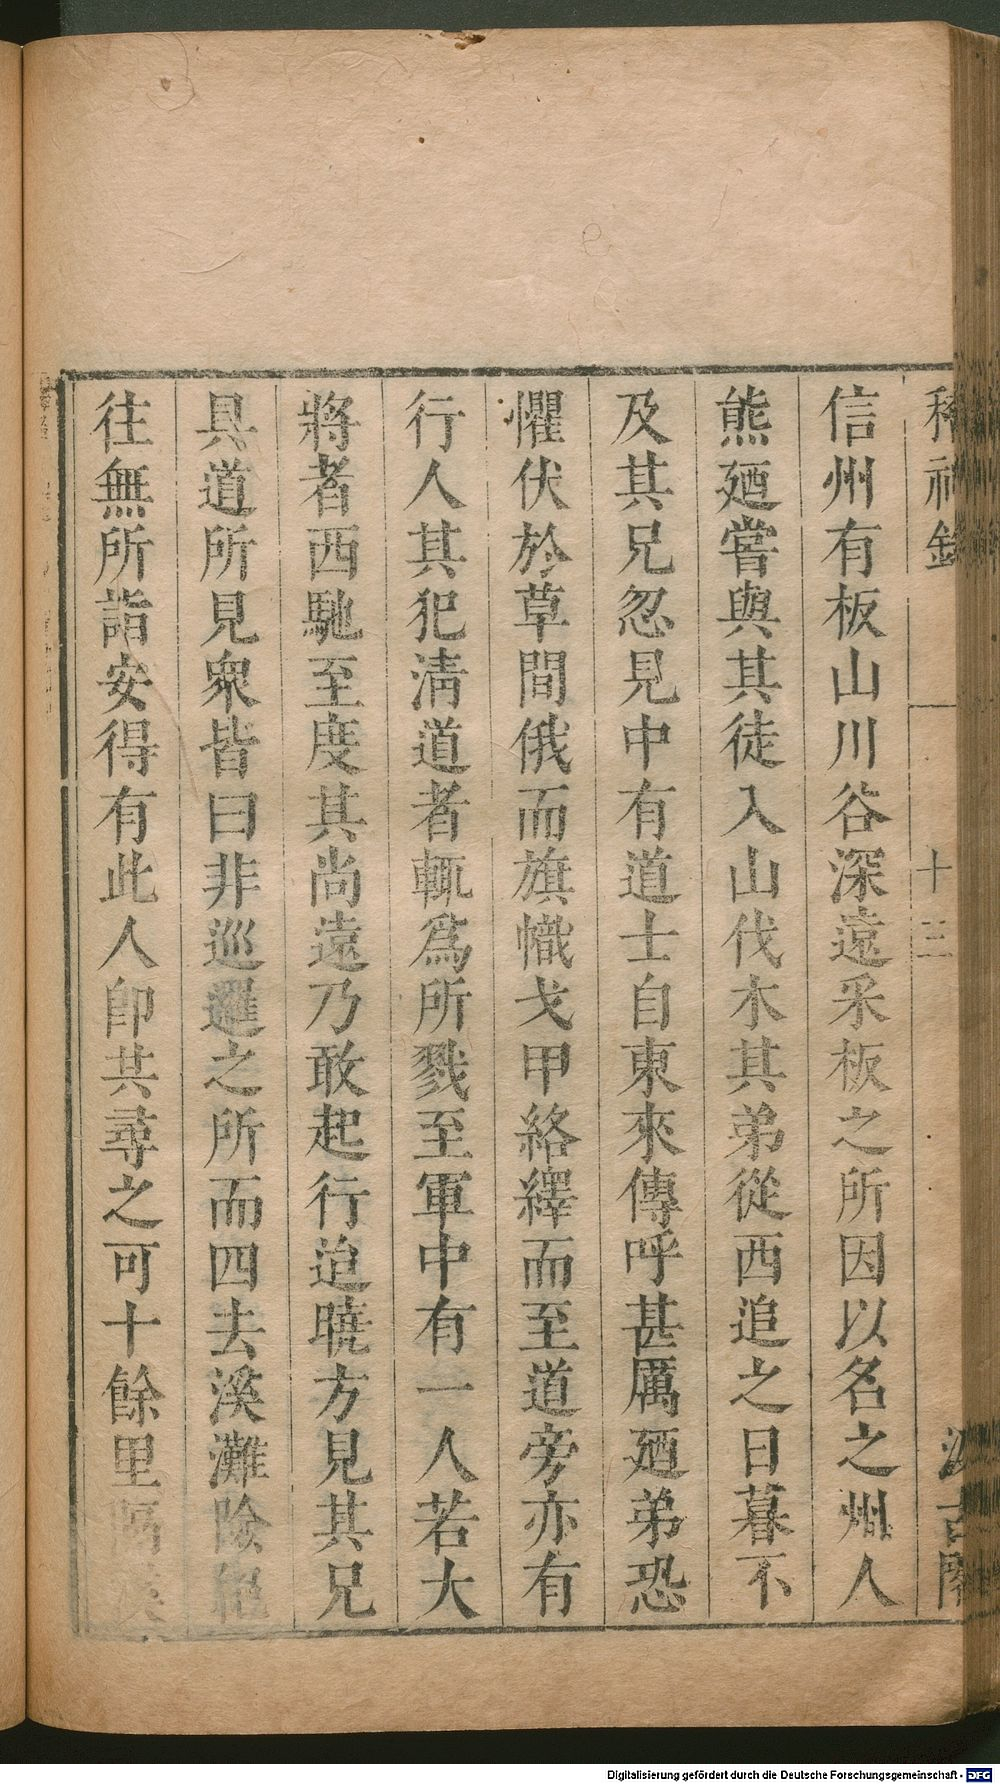 稽神錄
十三
汲古閣
信州有板山川谷深遠釆板之所因以名之州人
熊廼嘗與其徒入山伐木其弟從西追之日暮不
及其兄忽見中有道士自東來傳呼甚厲廼弟恐
懼伏於草間俄而旗幟戈甲絡繹而至道旁亦有
行人其犯淸道者輒爲所戮至軍中有一人若大
將者西馳至度其尚遠乃敢起行迨曉方見其兄
具道所見衆皆曰非巡邏之所而四去溪灘險絕
往無所詣安得有此人卽共尋之可十餘里隔溪
Digitalisierung gefördert durch die Deutsche Forschungsgemeinschaft - DFG